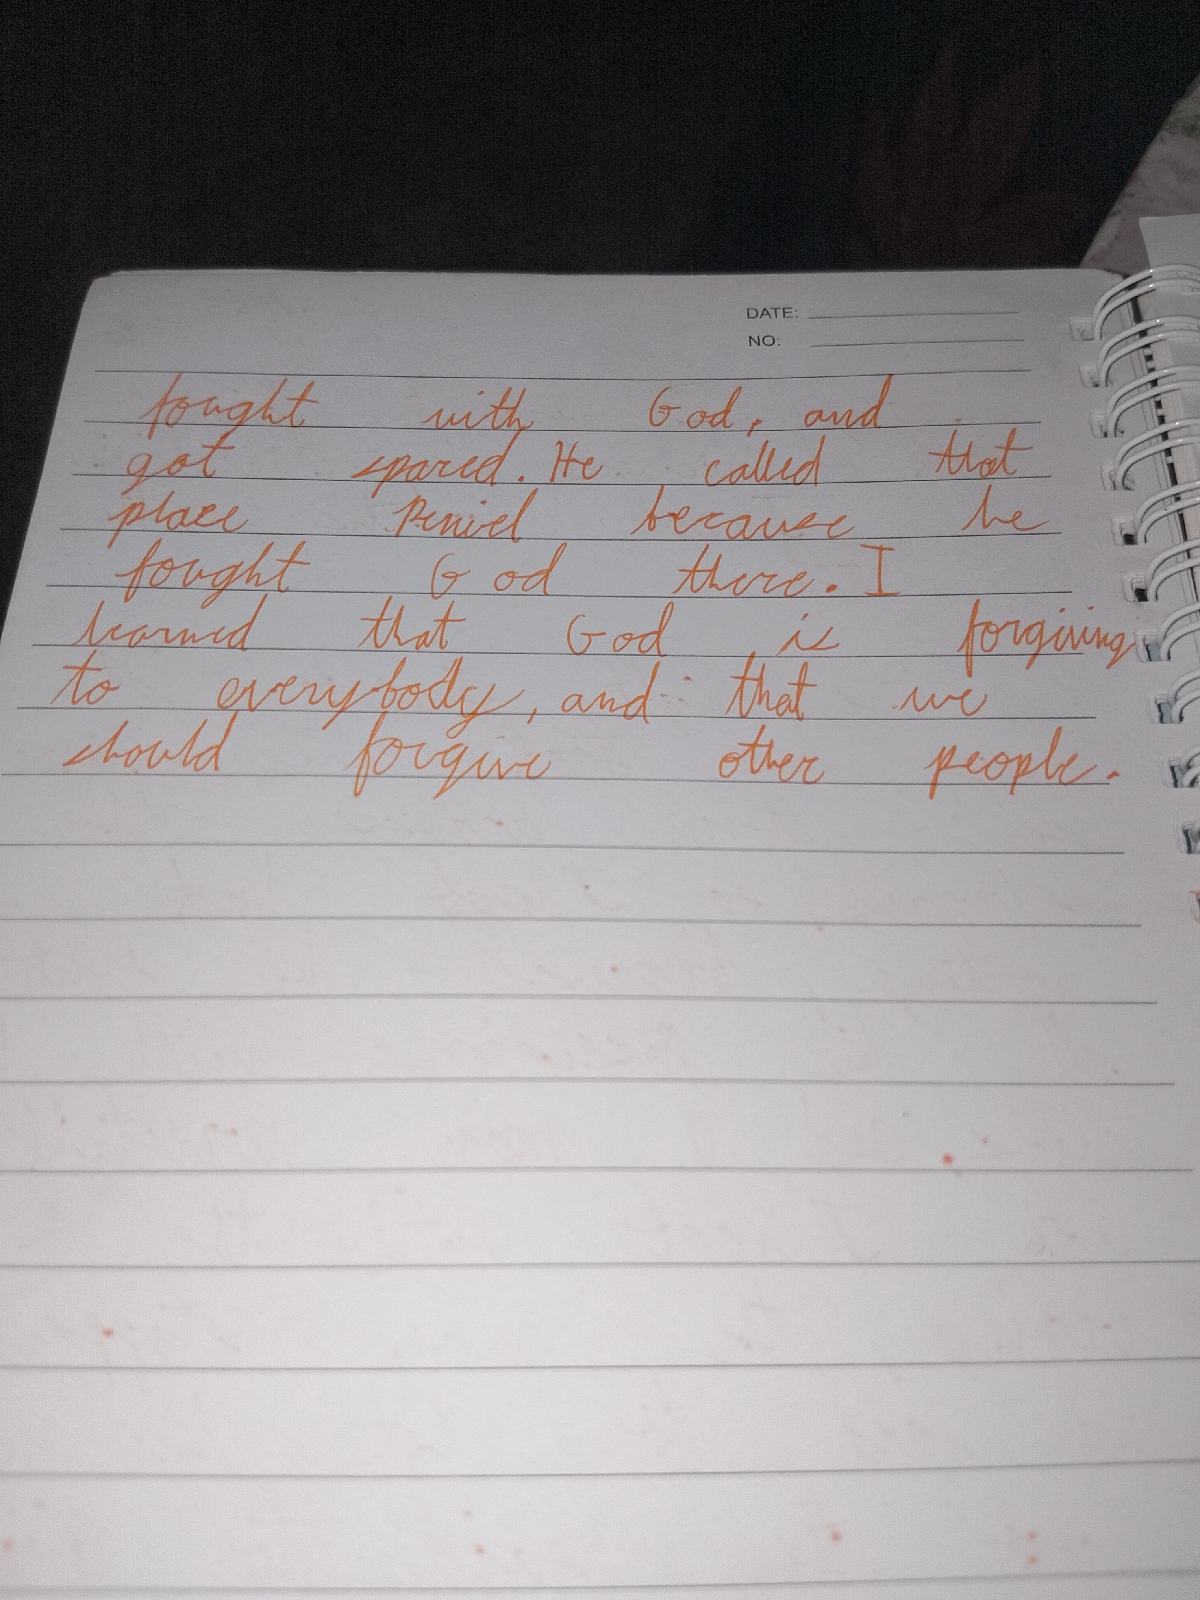 DATE:
NO:
fought with God, and
got spared. He called that
place Peniel because he
fought God there. I
learned that God is forgiving
to everybody, and that we
should forgive other people.